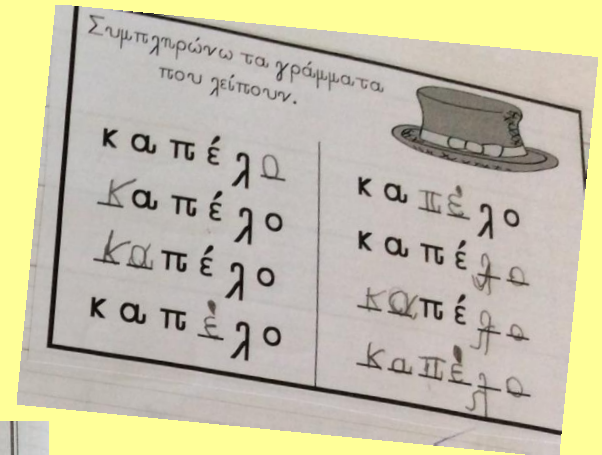 Συμπληρώνω τα γράμματα
που λείπουν.
κ α π έ λ ο
κ α π έ λ ο
κ α π έ λ ο
κ α π έ λ ο
κ α π έ λ ο
κ α π έ λ ο
κ α π έ λ ο
κ α π έ λ ο